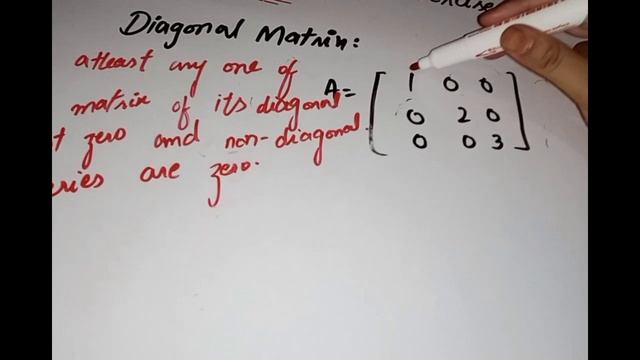 Diagonal Matrix:
atleast any one of
matrix of its diagonal
zero and non-diagonal
are zero.
A= [ 1 0 0
0 2 0
0 0 3 ]